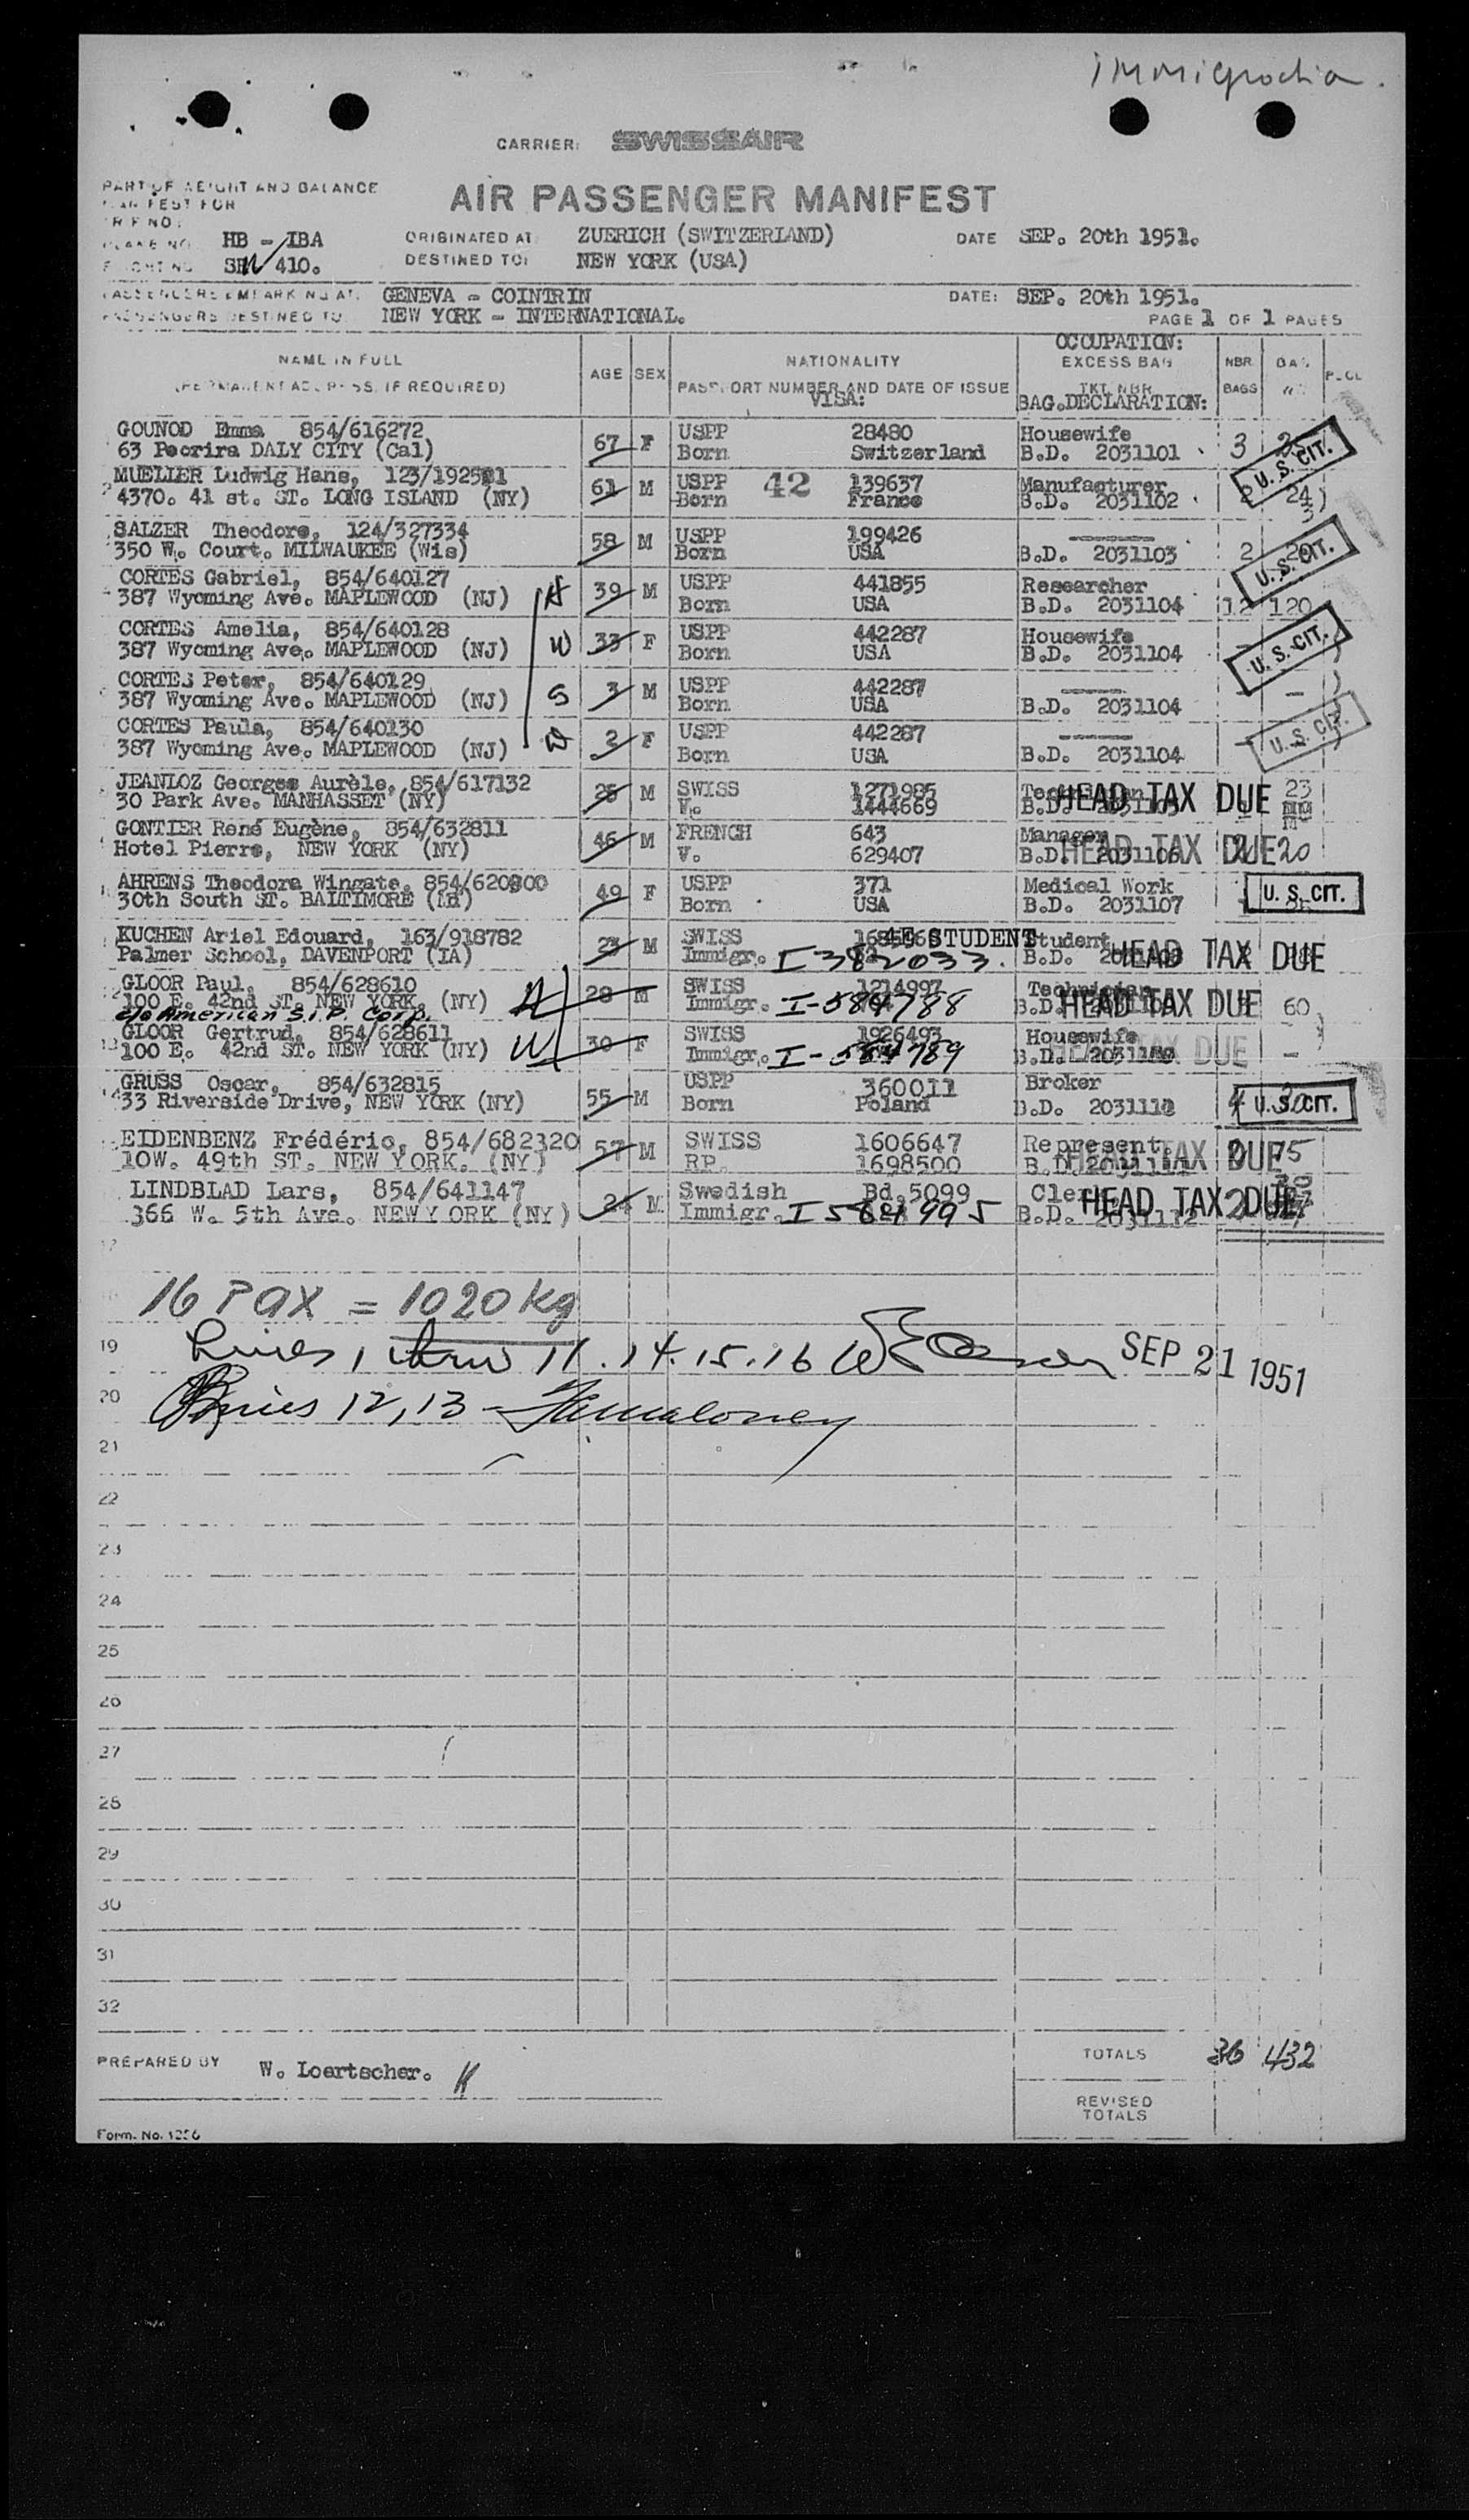 immigration.
CARRIER: SWISSAIR
PART OF WEIGHT AND BALANCE
AIR PASSENGER MANIFEST
HB - IBA ORIGINATED AT ZUERICH (SWITZERLAND) DATE SEP. 20th 1951.
410. DESTINED TO: NEW YORK (USA)
PASSENGERS EMBARKING AT: GENEVA - COINTRIN DATE: SEP. 20th 1951.
PASSENGERS DESTINED TO NEW YORK - INTERNATIONAL. PAGE 1 OF 1 PAGES
OCCUPATION:
NAME IN FULL AGE SEX NATIONALITY EXCESS BAG NBR BAG
(PERMANENT ADDRESS, IF REQUIRED) PASSPORT NUMBER AND DATE OF ISSUE TKT NBR BAGS
VISA: BAG.DECLARATION:
GOUNOD Emma 854/616272 67 F USPP 28480 Housewife 3
63 Peorira DALY CITY (Cal) Born Switzerland B.D. 2031101 U.S.CIT.
MUELLER Ludwig Hans, 61 M USPP 42 139637 Manufacturer
4370. 41 st. ST. LONG ISLAND (NY) Born France B.D. 2031102 24
SALZER Theodore, 124/327334 58 M USPP 199426
350 W. Court. MILWAUKEE (Wis) Born USA B.D. 2031103 2 U.S.CIT.
CORTES Gabriel, 854/640127 39 M USPP 441855 Researcher
387 Wyoming Ave. MAPLEWOOD (NJ) H Born USA B.D. 2031104 12 120
CORTES Amelia, 854/640128 33 F USPP 442287 Housewife
387 Wyoming Ave. MAPLEWOOD (NJ) W Born USA B.D. 2031104 U.S.CIT.
CORTES Peter, 854/640129 3 M USPP 442287
387 Wyoming Ave. MAPLEWOOD (NJ) S Born USA B.D. 2031104 -
CORTES Paula, 854/640130 2 F USPP 442287
387 Wyoming Ave. MAPLEWOOD (NJ) D Born USA B.D. 2031104 U.S.CIT.
JEANLOZ Georges Aurèle, 854/617132 M SWISS 1271985 23
30 Park Ave. MANHASSET (NY) V. 1444669 HEAD TAX DUE
GONTIER René Eugène, 854/632811 46 M FRENCH 643 Manager
Hotel Pierre, NEW YORK (NY) V. 629407 B.D. 2031106 HEAD TAX DUE 20
AHRENS Theodora Wingate, 49 F USPP 371 Medical Work
30th South ST. BALTIMORE (Md) Born USA B.D. 2031107 U.S.CIT.
KUCHEN Ariel Edouard, 163/918782 23 M SWISS 4E STUDENT Student
Palmer School, DAVENPORT (IA) Immigr. I 382033. B.D. HEAD TAX DUE
GLOOR Paul, 854/628610 28 M SWISS 1214997 Technician
100 E. 42nd ST. NEW YORK. (NY) H Immigr. I-584788 B.D. HEAD TAX DUE 60
c/o American S.I.P. Corp.
GLOOR Gertrud, 854/628611 30 F SWISS 1926493 Housewife
100 E. 42nd ST. NEW YORK (NY) W Immigr. I-584789 B.D. HEAD TAX DUE -
GRUSS Oscar, 854/632815 55 M USPP 360011 Broker
33 Riverside Drive, NEW YORK (NY) Born Poland B.D. 4 U.S.CIT.
EIDENBENZ Frédéric, 854/682320 57 M SWISS 1606647 Represent.
10W. 49th ST. NEW YORK. (NY) RP. 1698500 B.D. HEAD TAX DUE
LINDBLAD Lars, 854/641147 24 M Swedish Bd.5099 Clerk
366 W. 5th Ave. NEW YORK (NY) Immigr. I 584995 B.D. 2031112 HEAD TAX DUE
17
16 Pax = 1020 kg
19 Lines 1 thru 11.14.15.16 SEP 21 1951
20 Lines 12, 13 -
21
22
23
24
25
26
27
28
29
30
31
32
PREPARED BY W. Loertscher. TOTALS 36 432
REVISED
TOTALS
Form. No. 1256